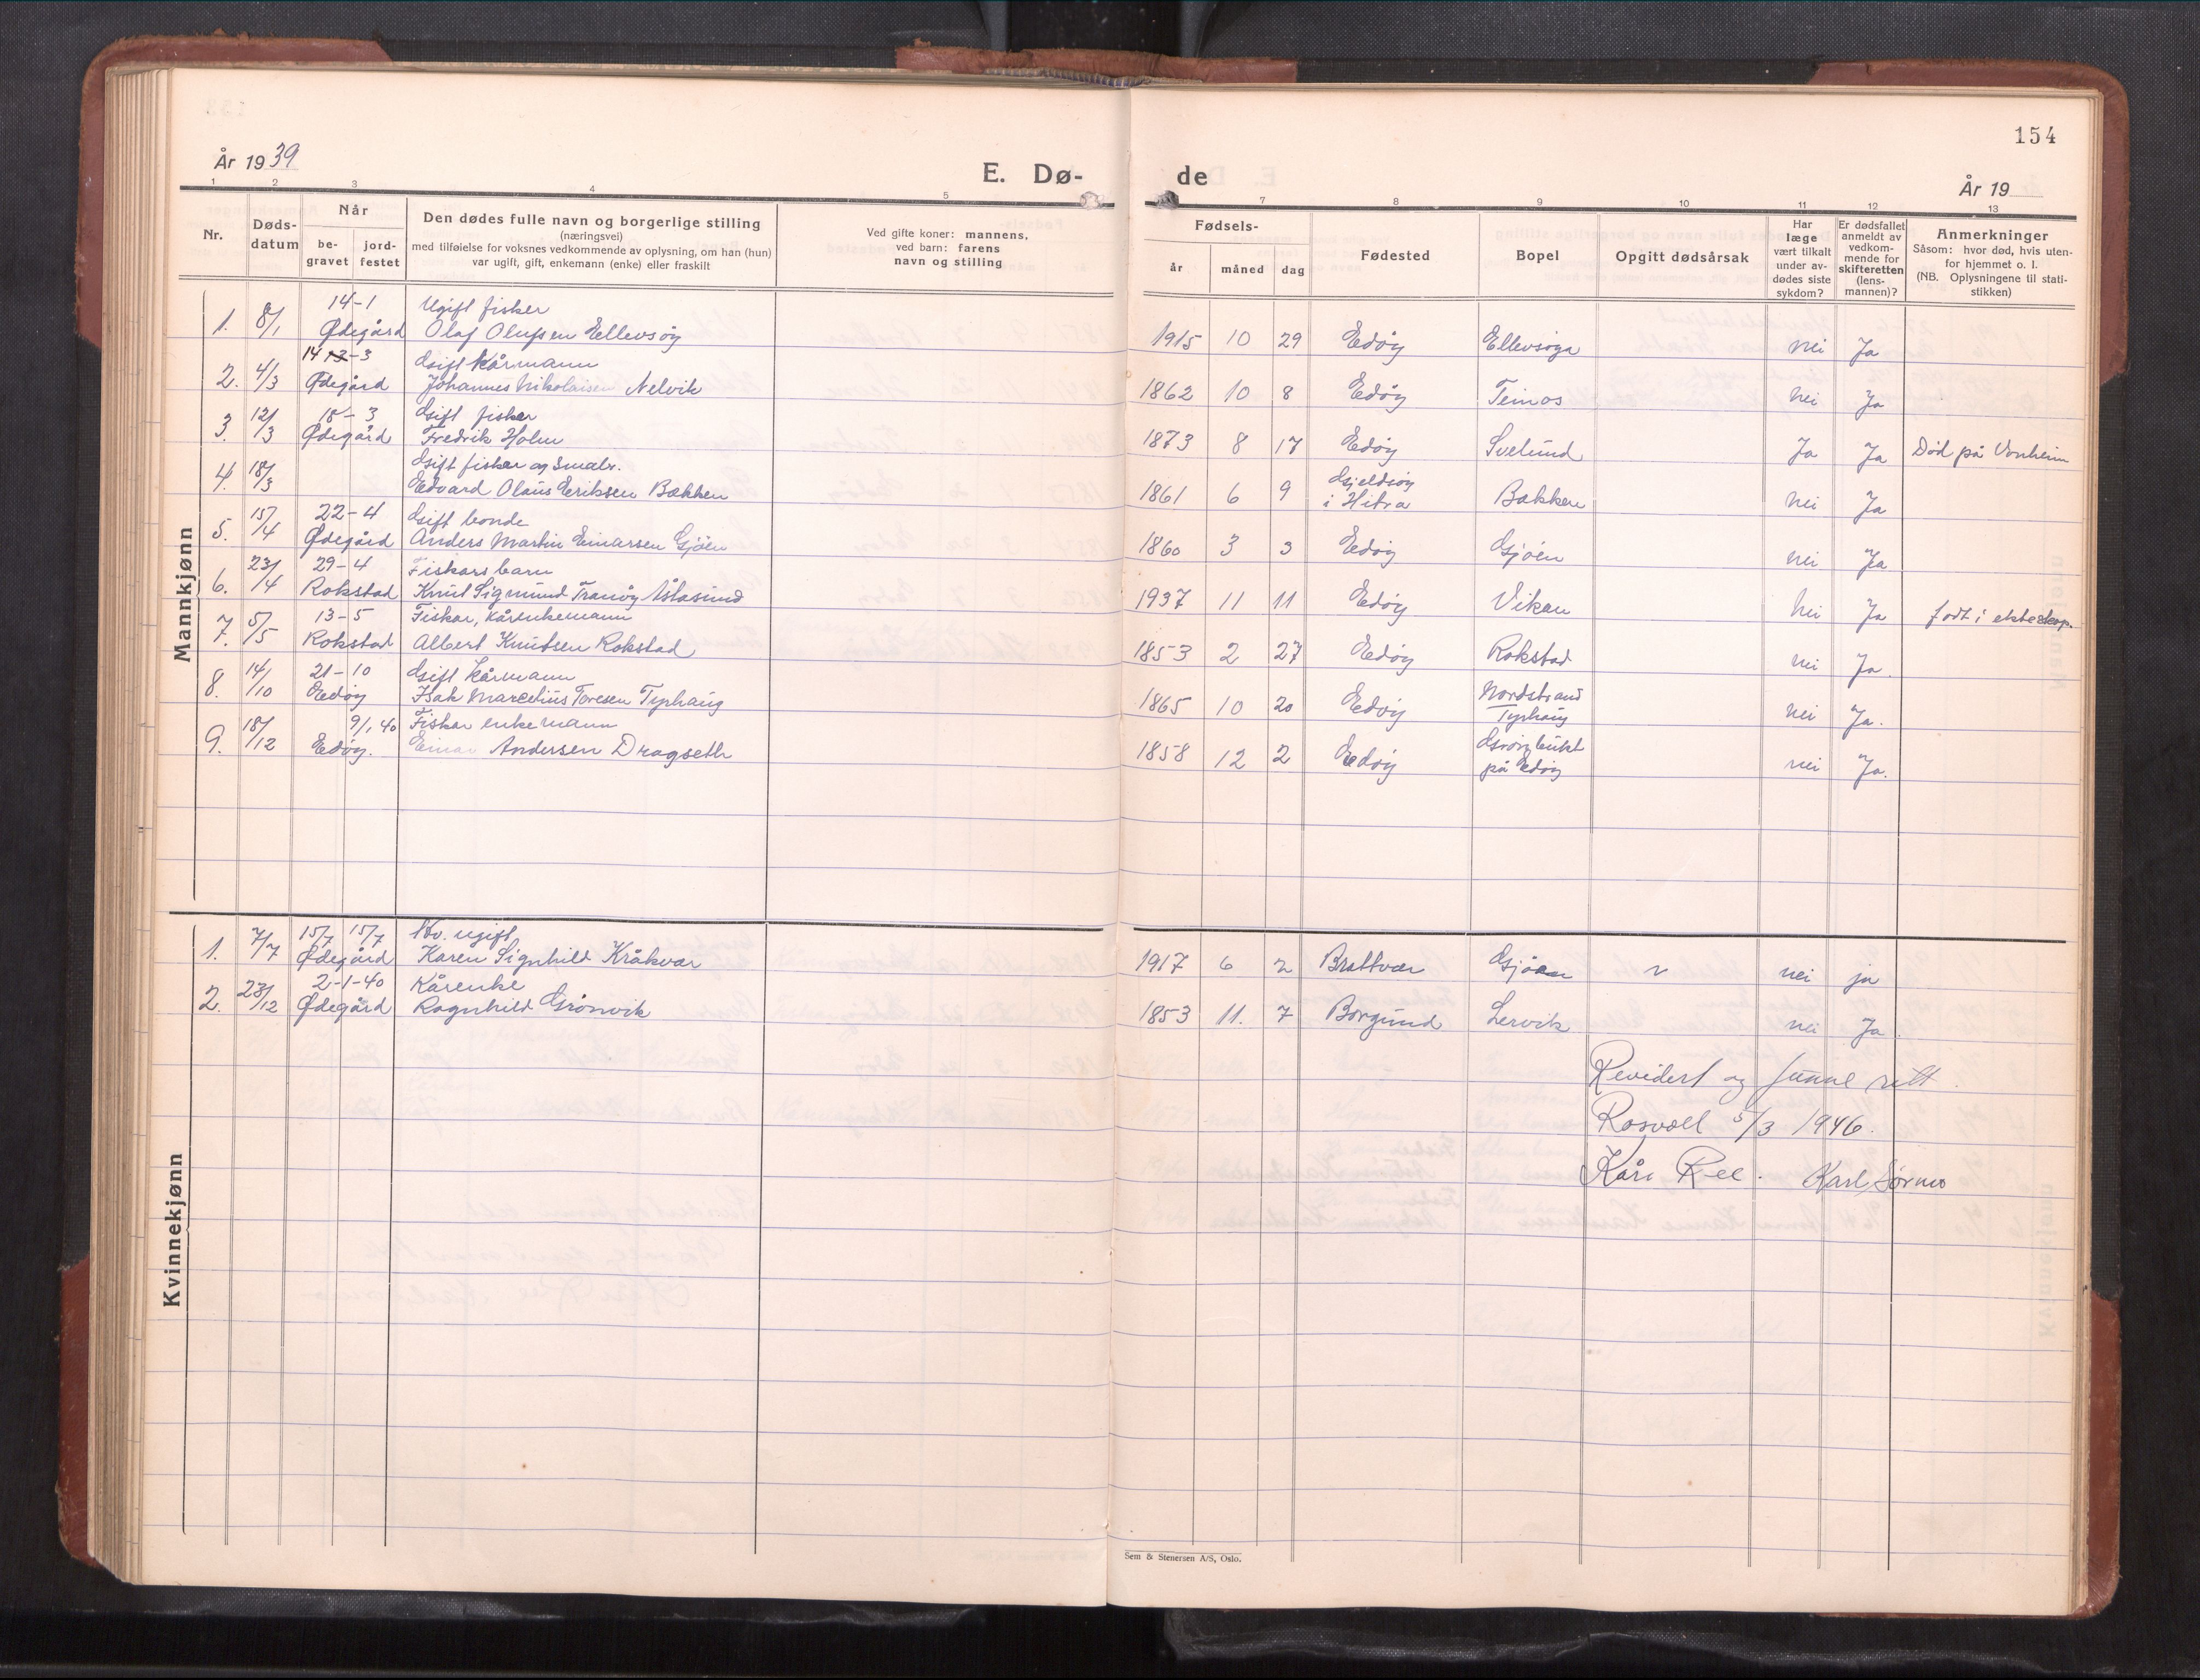 154
År 1939
E. Dø-
de
År 19
1 2 3 4 5 7 8 9 10 11 12 13
Nr.
Døds-
datum
Når
be-
gravet
jord-
festet
Den dødes fulle navn og borgerlige stilling
(næringsvei)
med tilføielse for voksnes vedkommende av oplysning, om han (hun)
var ugift, gift, enkemann (enke) eller fraskilt
Ved gifte koner: mannens,
ved barn: farens
navn og stilling
Fødsels-
år måned dag
Fødested
Bopel
Opgitt dødsårsak
Har
læge
vært tilkalt
under av-
dødes siste
sykdom?
Er dødsfallet
anmeldt av
vedkom-
mende for
skifteretten
(lens-
mannen)?
Anmerkninger
Såsom: hvor død, hvis uten-
for hjemmet o. l.
(NB. Oplysningene til stati-
stikken)
Mannkjønn
14-1 Ugift fisker
1. 8/1 Ødegård Olaf Olufsen Ellevsøy 1915 10 29 Edøy Ellevsøya nei Ja
14 13-3 Gift kårmann
2. 4/3 Ødegård Johannes Nikolaisen Nelvik 1862 10 8 Edøy Teinos nei Ja
18-3 Gift fisker
3. 12/3 Ødegård Fredrik Holm 1873 8 17 Edøy Svelund Ja Ja Død på Vonheim
Gift fisker og smabr.
4. 18/3 Edvard Olaus Eriksen Bakken 1861 6 9 Gjeldsøy i Hitra Bakken nei Ja
22-4 Gift bonde
5. 15/4 Ødegård Anders Martin Einarsen Gjöen 1860 3 3 Edøy Gjöen nei Ja
29-4 Fiskars barn
6. 23/4 Rokstad Knut Sigmund Tranøy Aslasund 1937 11 11 Edøy Vikan nei Ja født i ekteskap.
13-5 Fiskar, kårenkemann
7. 5/5 Rokstad Albert Knutsen Rokstad 1853 2 27 Edøy Rokstad nei Ja.
21-10 Gift kårmann
8. 14/10 Edøy Isak Marcelius Toresen Typhaug 1865 10 20 Edøy Nordstrand Typhaug nei Ja.
9/1, 40 Fiskar enkemann
9. 18/12 Edøy. Einar Andersen Dragseth 1858 12 2 Edøy Grönbukt på Edöy nei Ja.
Kvinnekjønn
15/7 15/7 Hv. ugift
1. 7/7 Ødegård Karen Signhild Kråkvær 1917 6 2 Brattvær Gjöen nei ja
2-1-40 Kårenke
2. 23/12 Ødegård Ragnhild Grönvik 1853 11. 7 Borgund Lervik nei Ja.
Revidert og funne rett.
Rosvoll 5/3 1946.
Kåre Ree. Karl Sørmo
Sem & Stenersen A/S, Oslo.